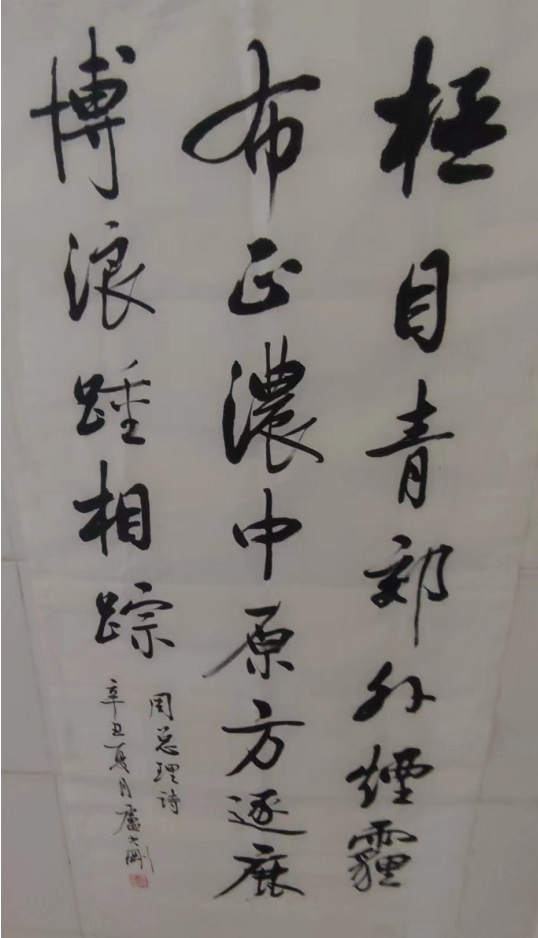 極目青郊外煙霾
布正濃中原方逐鹿
博浪踵相踪
周总理詩
辛丑夏